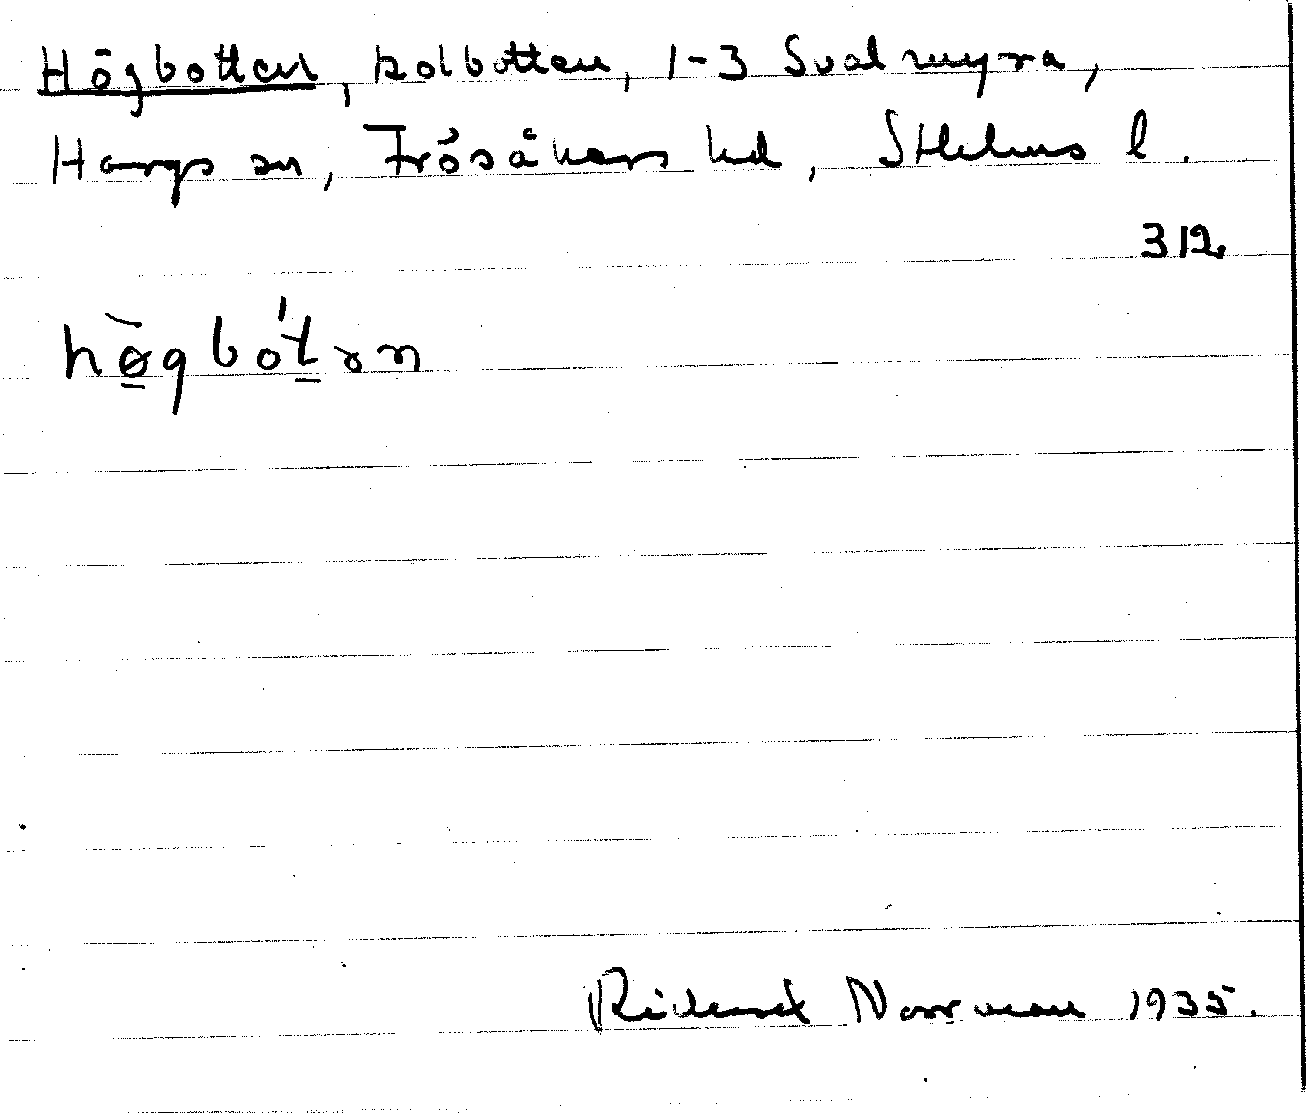 Högbotten, kolbotten, 1-3 Svalmyra,
Hargs sn, Frösåkers hd, Sthlms l.
312.
hø̀gbót̠ən
Rickard Norrman 1935.